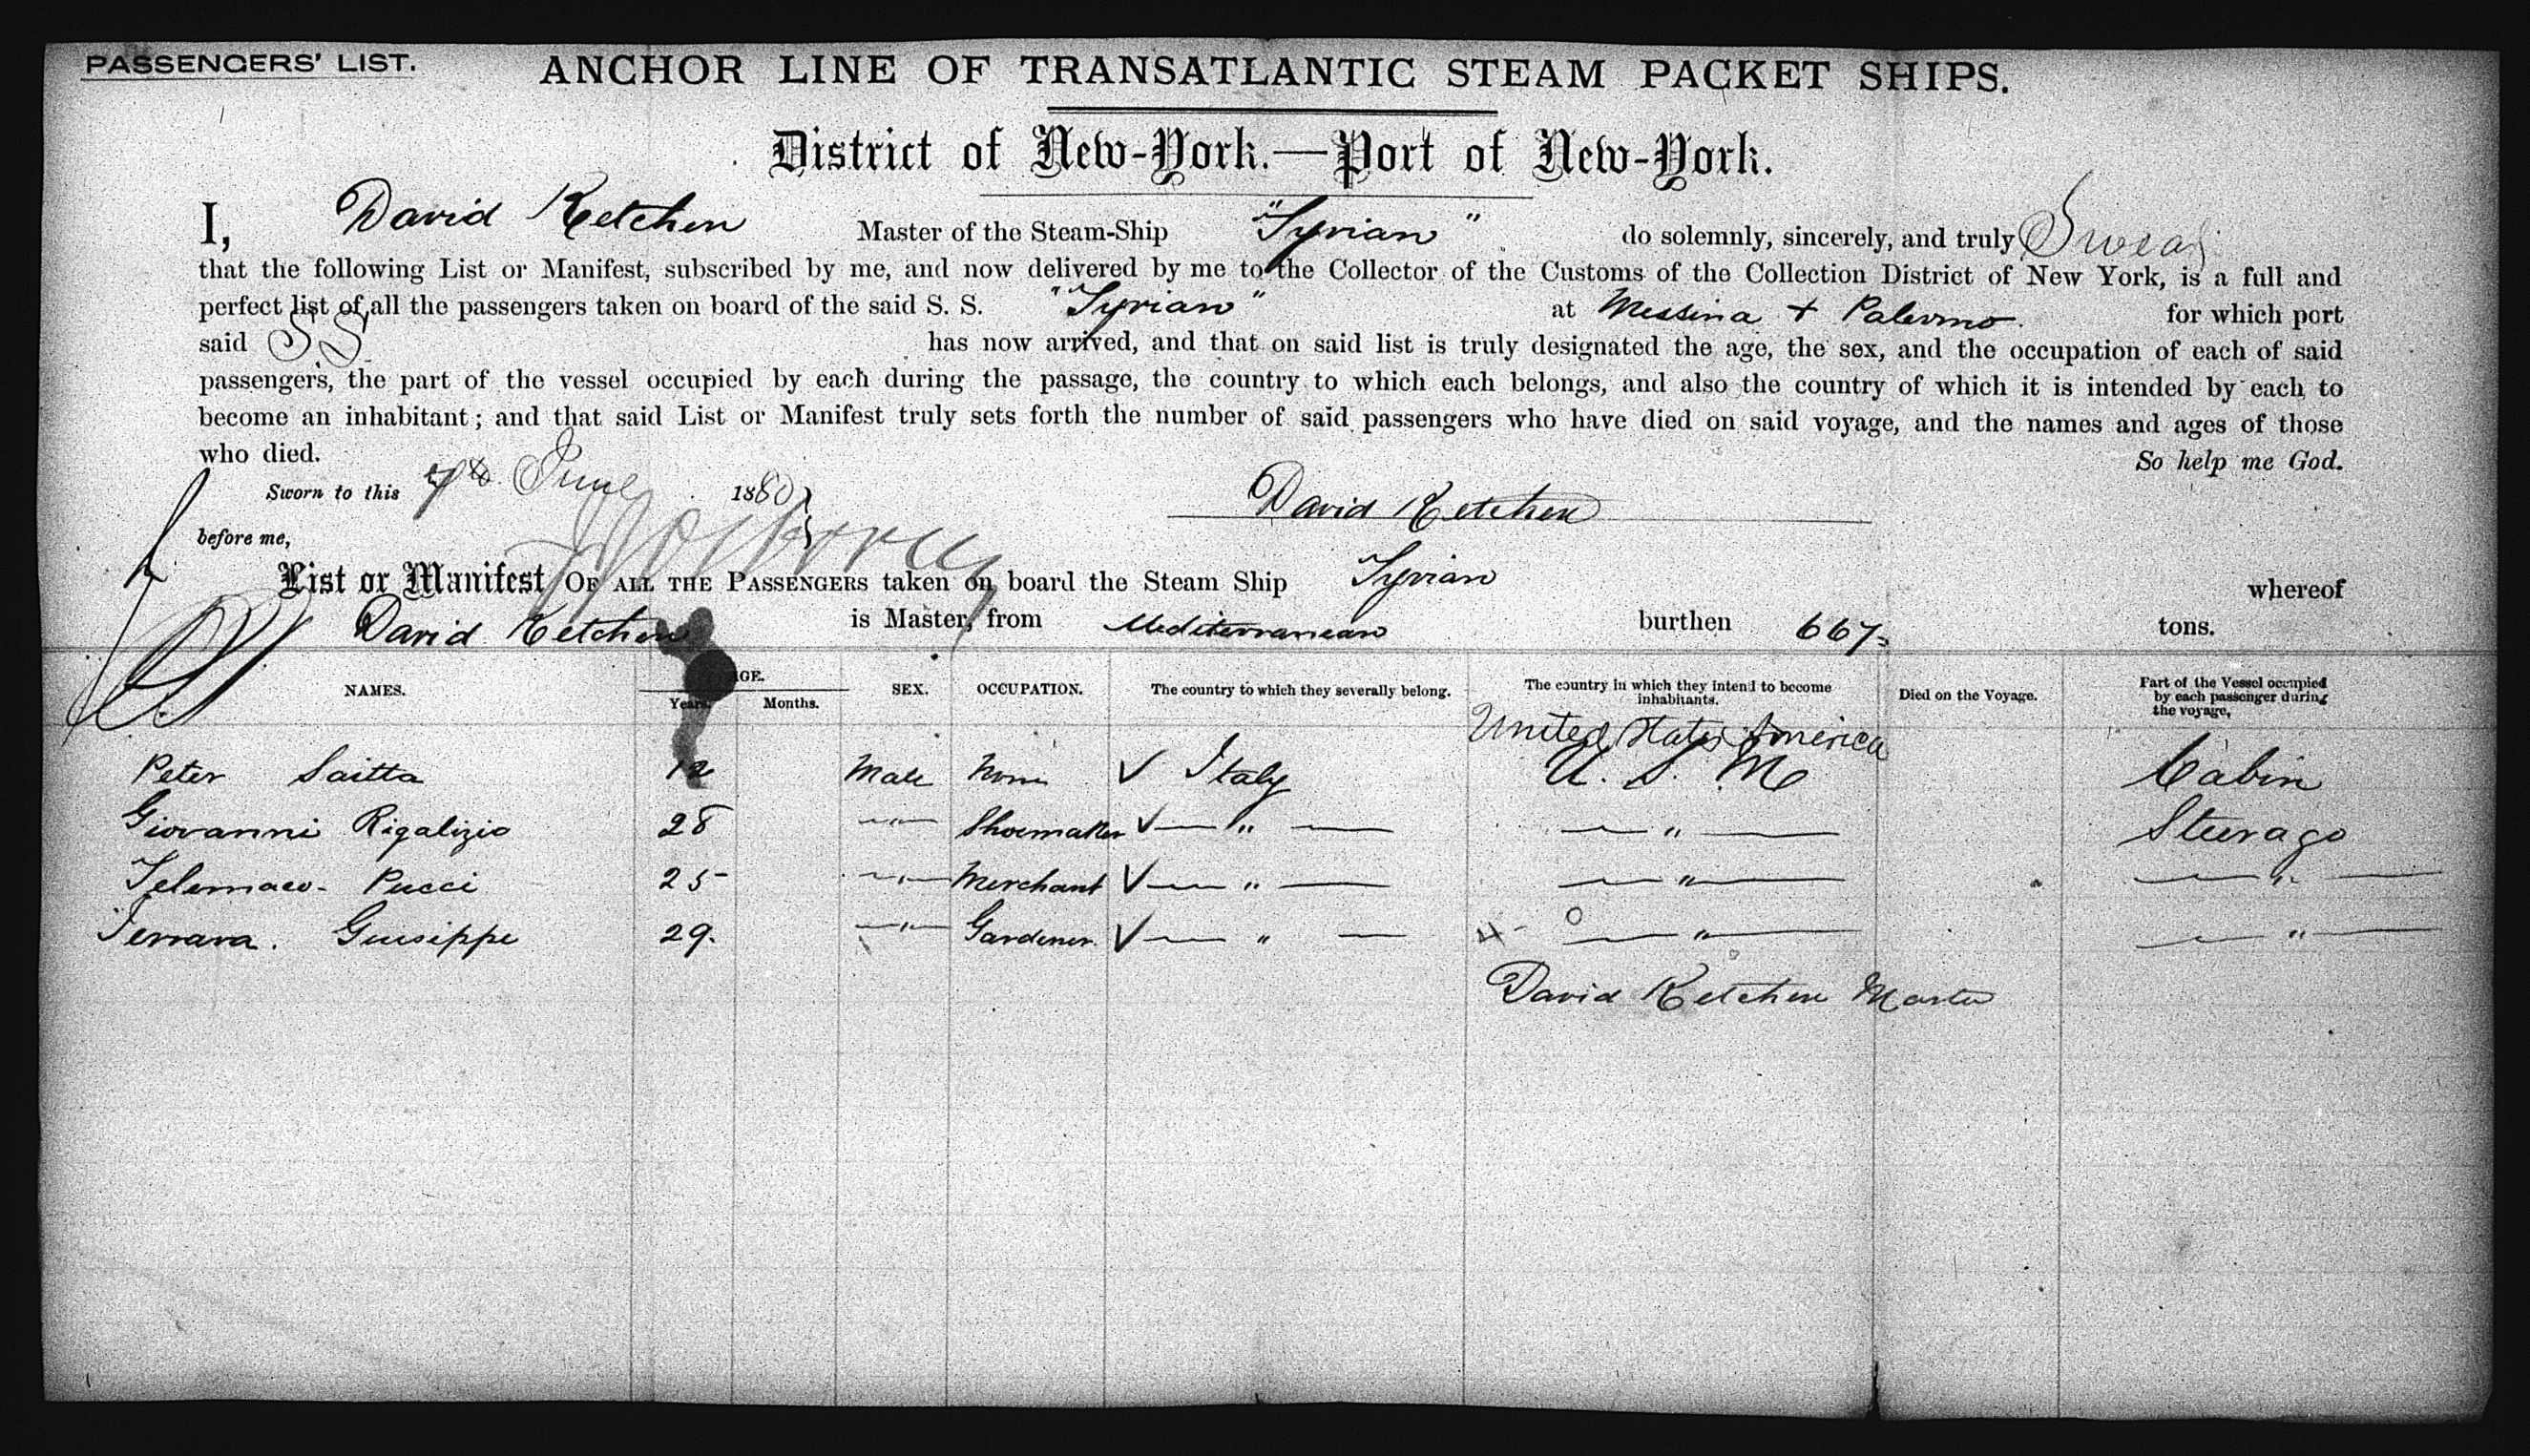 PASSENGERS' LIST. ANCHOR LINE OF TRANSATLANTIC STEAM PACKET SHIPS.
District of New-York.—Port of New-York.
I, David Ketchen Master of the Steam-Ship "Syrian" do solemnly, sincerely, and truly Swear
that the following List or Manifest, subscribed by me, and now delivered by me to the Collector of the Customs of the Collection District of New York, is a full and
perfect list of all the passengers taken on board of the said S. S. "Syrian" at Messina + Palermo. for which port
said S.S. has now arrived, and that on said list is truly designated the age, the sex, and the occupation of each of said
passengers, the part of the vessel occupied by each during the passage, the country to which each belongs, and also the country of which it is intended by each to
become an inhabitant; and that said List or Manifest truly sets forth the number of said passengers who have died on said voyage, and the names and ages of those
who died. So help me God.
Sworn to this 7th June 1880 David Ketchen
before me,
List or Manifest OF ALL THE PASSENGERS taken on board the Steam Ship Syrian whereof
David Ketchen is Master, from Mediterranean burthen 667 tons.
NAMES. AGE. Years. Months. SEX. OCCUPATION. The country to which they severally belong. The country in which they intend to become inhabitants. Died on the Voyage. Part of the Vessel occupied by each passenger during the voyage,
United States America
Peter Saitta 12 Male None ✓ Italy U. S. M Cabin
Giovanni Rigalizio 28 —"— Shoemaker ✓ —"— —"— Steerage
Telemaco Pucci 25 —"— Merchant ✓ —"— —"— —"—
Ferrara. Guiseppe 29. —"— Gardener. ✓ —"— —"— —"—
David Ketchen Master